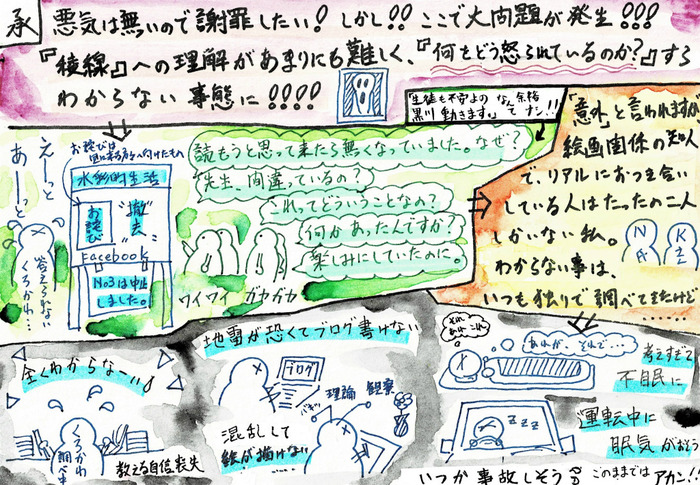 承
悪気は無いので謝罪したい! しかし!! ここで大問題が発生!!!
『稜線』への理解があまりにも難しく、『何をどう怒られているのか?』すら
わからない 事態に!!!!
生徒も不安よの
黒川 動きます。
なんて余裕
ナシ!!
お詫びは
えーっと
あーっと
水彩的生活
お詫び
"撤去"
Facebook
No3は中止
しました。
答えられない
くろかわ…
読もうと思って来たら無くなっていました。なぜ?
先生、間違っているの?
これってどういうことなの?
何かあったんですか?
楽しみにしていたのに。
ワイワイ ガヤガヤ
「意外」と言われますが
絵画関係の知人
で、リアルにおつき合い
している人はたったの二人
しかいない私。
わからない事は、
いつも独りで調べてきたけど
………
N
A
K
Z
全くわからなーい
くろかわ
調べ中
教える自信喪失
地雷が恐くてブログ書けない
ブログ
混乱して
絵が描けない
バキッ
理論
観察
それ
あれ これ
あれが、それで…
考えすぎて
不眠に
zzz
運転中に
眠気がおそう
いつか事故しそう
このままでは
アカン!!